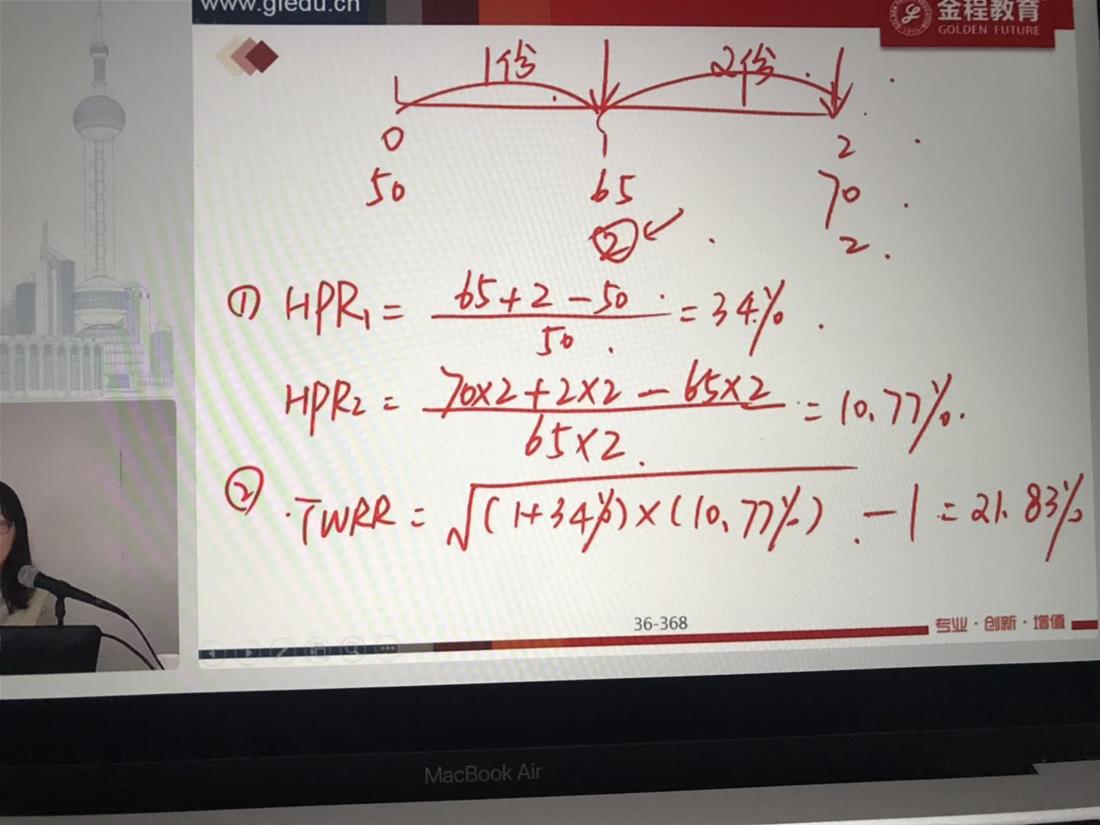 www.gfedu.cn
金程教育
GOLDEN FUTURE
1份 2份
0 1 2
50 65 70
② 2
① HPR₁ = (65+2-50)/50 = 34%
HPR₂ = (70×2+2×2-65×2)/(65×2) = 10.77%
② TWRR = √((1+34%)×(10.77%)) - 1 = 21.83%
36-368
专业·创新·增值
MacBook Air